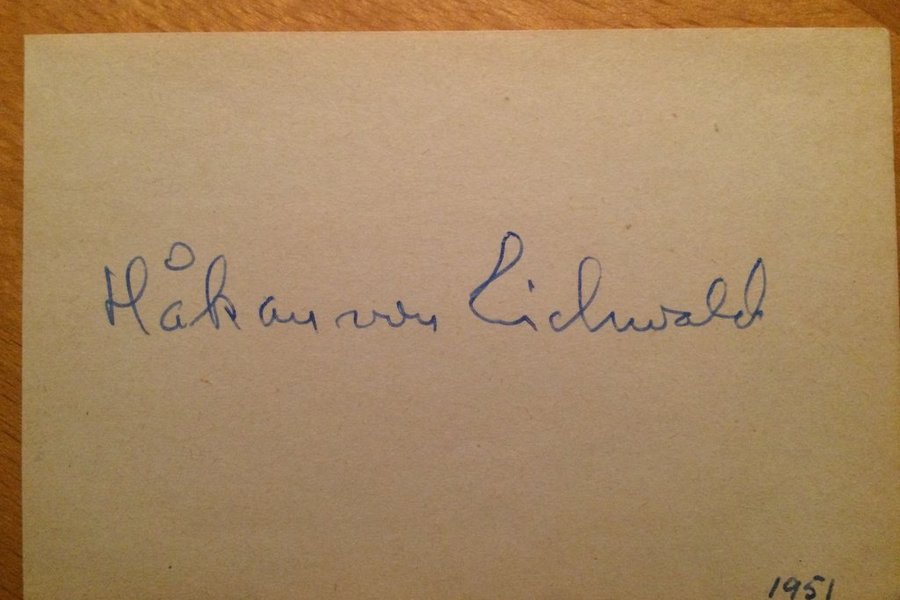 Håkan von Eichwald
1951